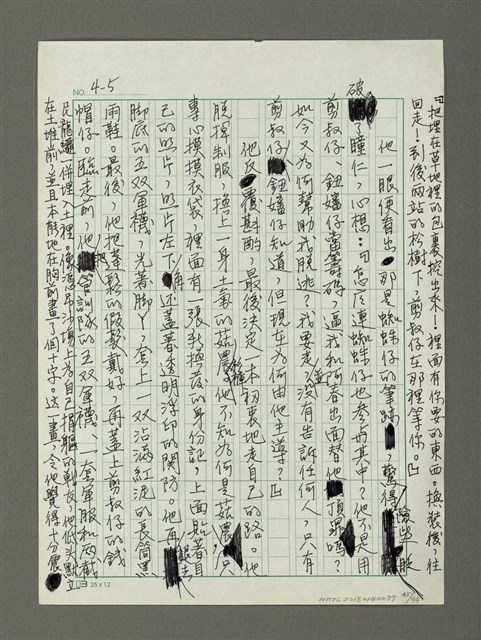 NO. 4-5
「把埋在草地裡的包裹挖出來！裡面有你要的東西。換裝後，往
回走！到後网站的松樹下，剪叔仔在那裡等你。」
他一眼便看出那是蜘蛛仔的筆跡，驚得險些脫
破了瞳仁，心想：「怎麼連蜘蛛仔也參與其中？他不是用
剪叔仔、鈕嬸仔當籌碼，逼我和阿春出面替他頂罪嗎？
如今又為何幫助我脫逃？我要走，沒有告訴任何人，只有
剪叔仔、鈕嬸仔知道，但現在為何由他主導？」
他反覆斟酌，最後決定一本初衷地走自己的路。他
脫掉制服，換上一身土氣的菇農。他不知為何是菇農，只
專心摸摸衣袋，裡面有一張新換發的身份証，上面貼著自
己的照片，照片左下角還蓋著透明浮印的關防。他再
脚底的五双軍襪，光著脚丫，套上一双沾滿紅泥的長筒黑
雨鞋。最後，他把蓬鬆的假髮戴好，再蓋上剪叔仔的鉞
帽仔。臨走前，他把管訓隊的五双軍襪、一套軍服和兩截
尼龍繩一併埋入土裡。像憑吊沙場上為自己捐軀的戰友，他低頭默立
在土堆前，並且本能地在胸前畫了個十字。這一畫，令他覺得十分震
25 x 12